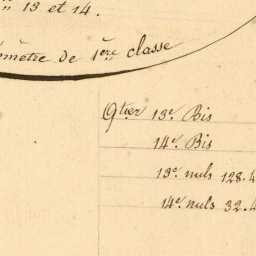 13 et 14.
mètre de 1ère classe
Qtier 13e Bis
14e Bis
13e nuls 128.4
14e nuls 32.4